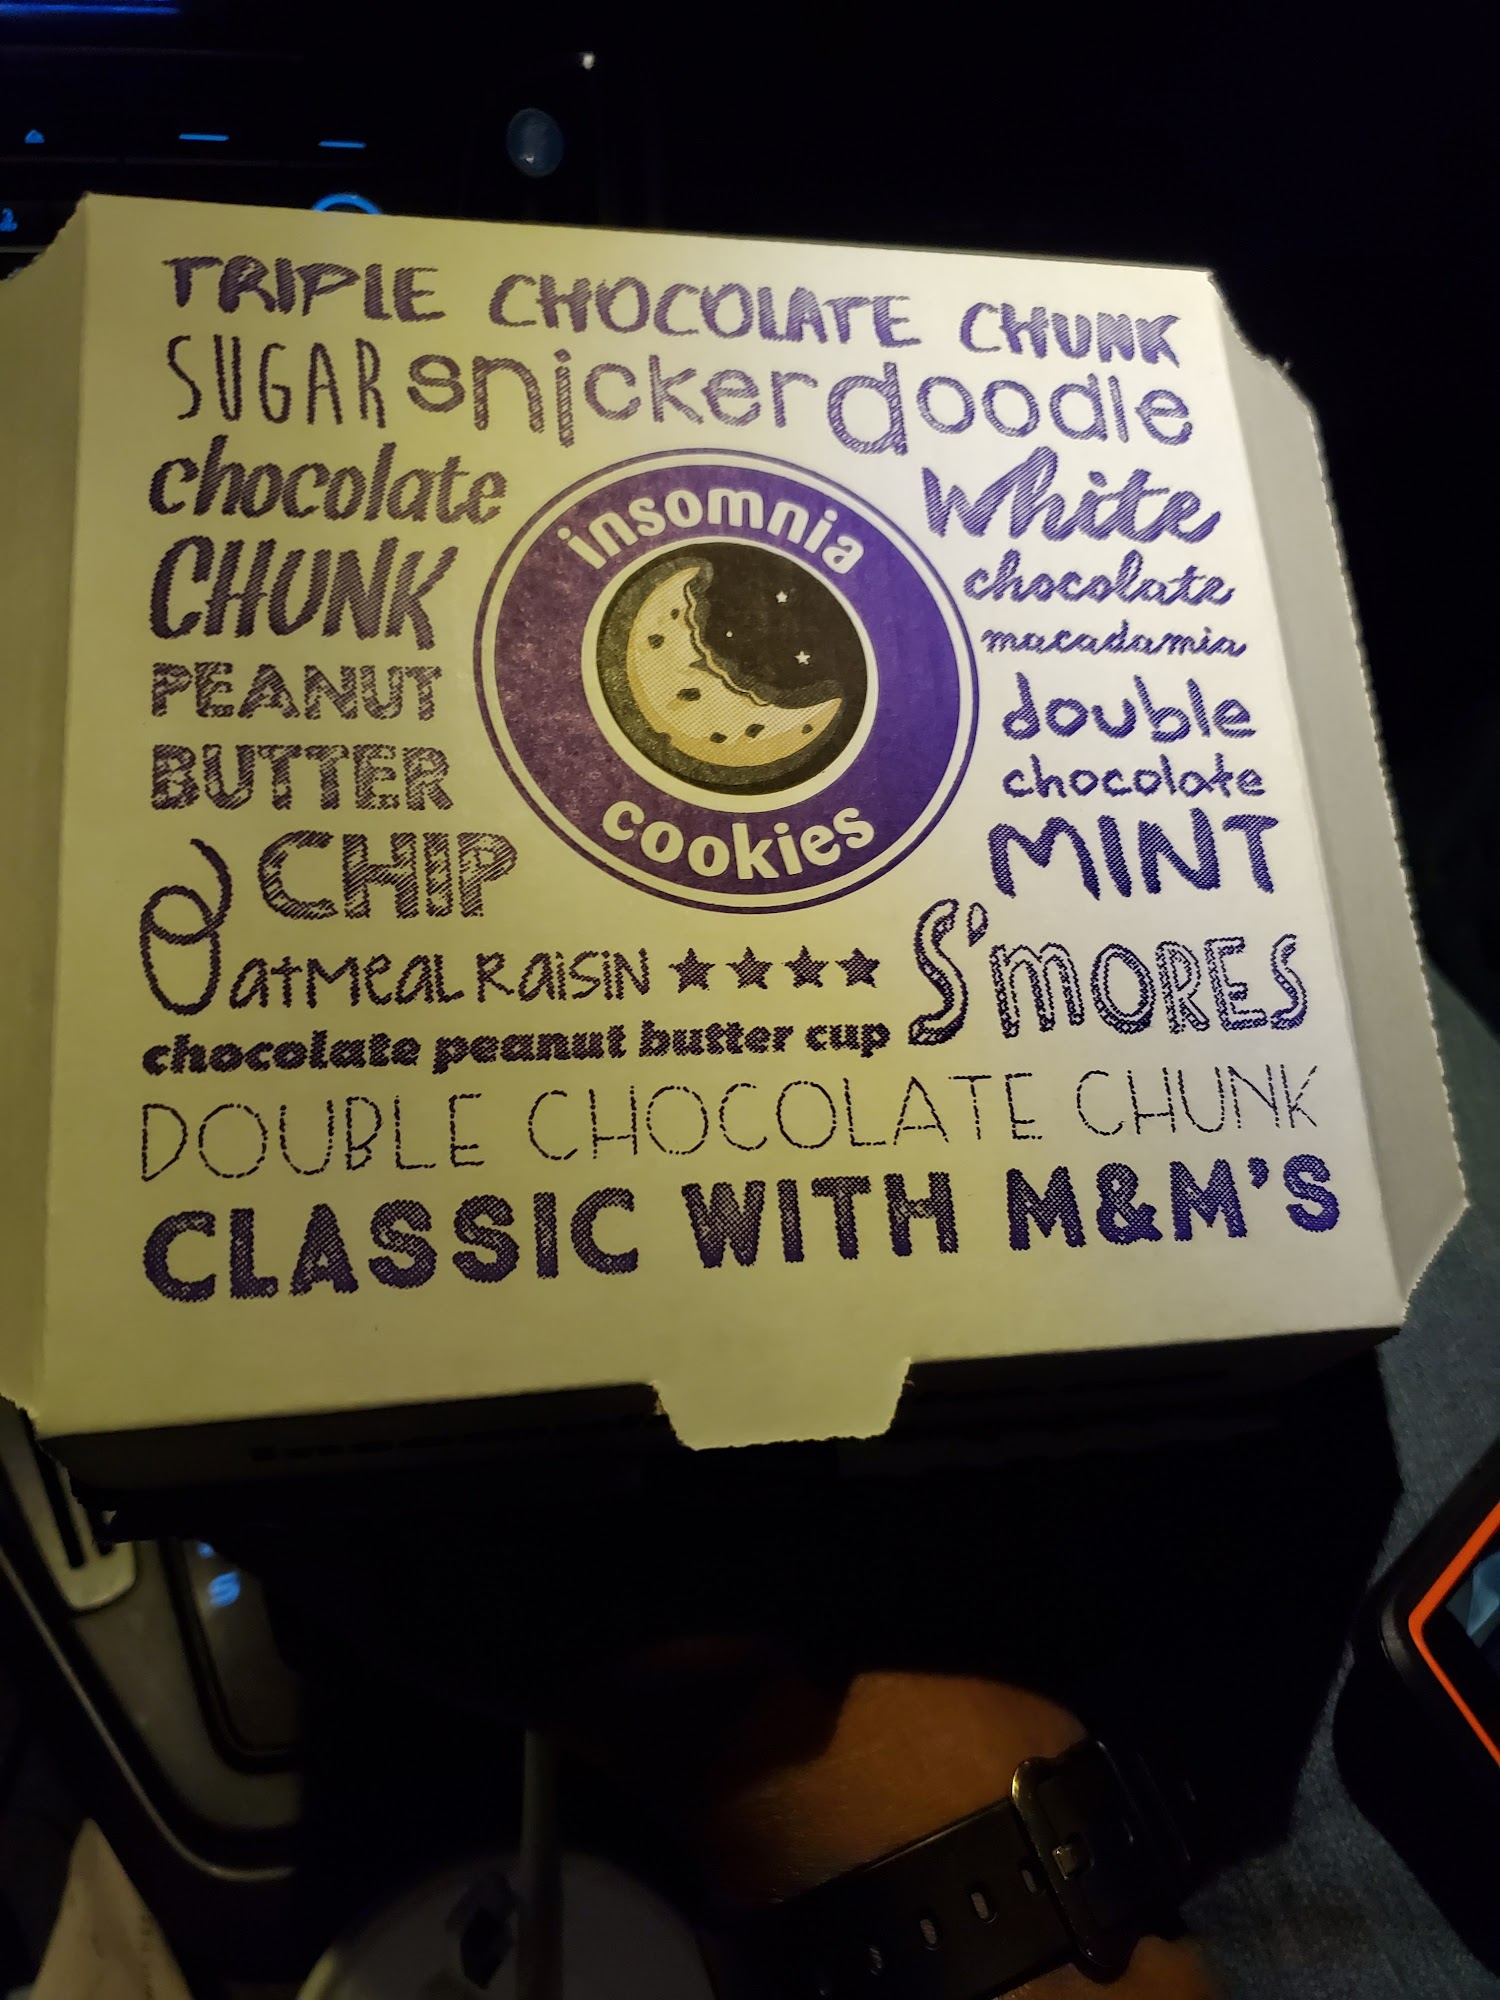 TRIPLE CHOCOLATE CHUNK
SUGAR snickerdoodle
chocolate
CHUNK
PEANUT
BUTTER
CHIP
insomnia
cookies
White
chocolate
macadamia
double
chocolate
MINT
Oatmeal Raisin ★★★★
S'mores
chocolate peanut butter cup
DOUBLE CHOCOLATE CHUNK
CLASSIC WITH M&M'S
S